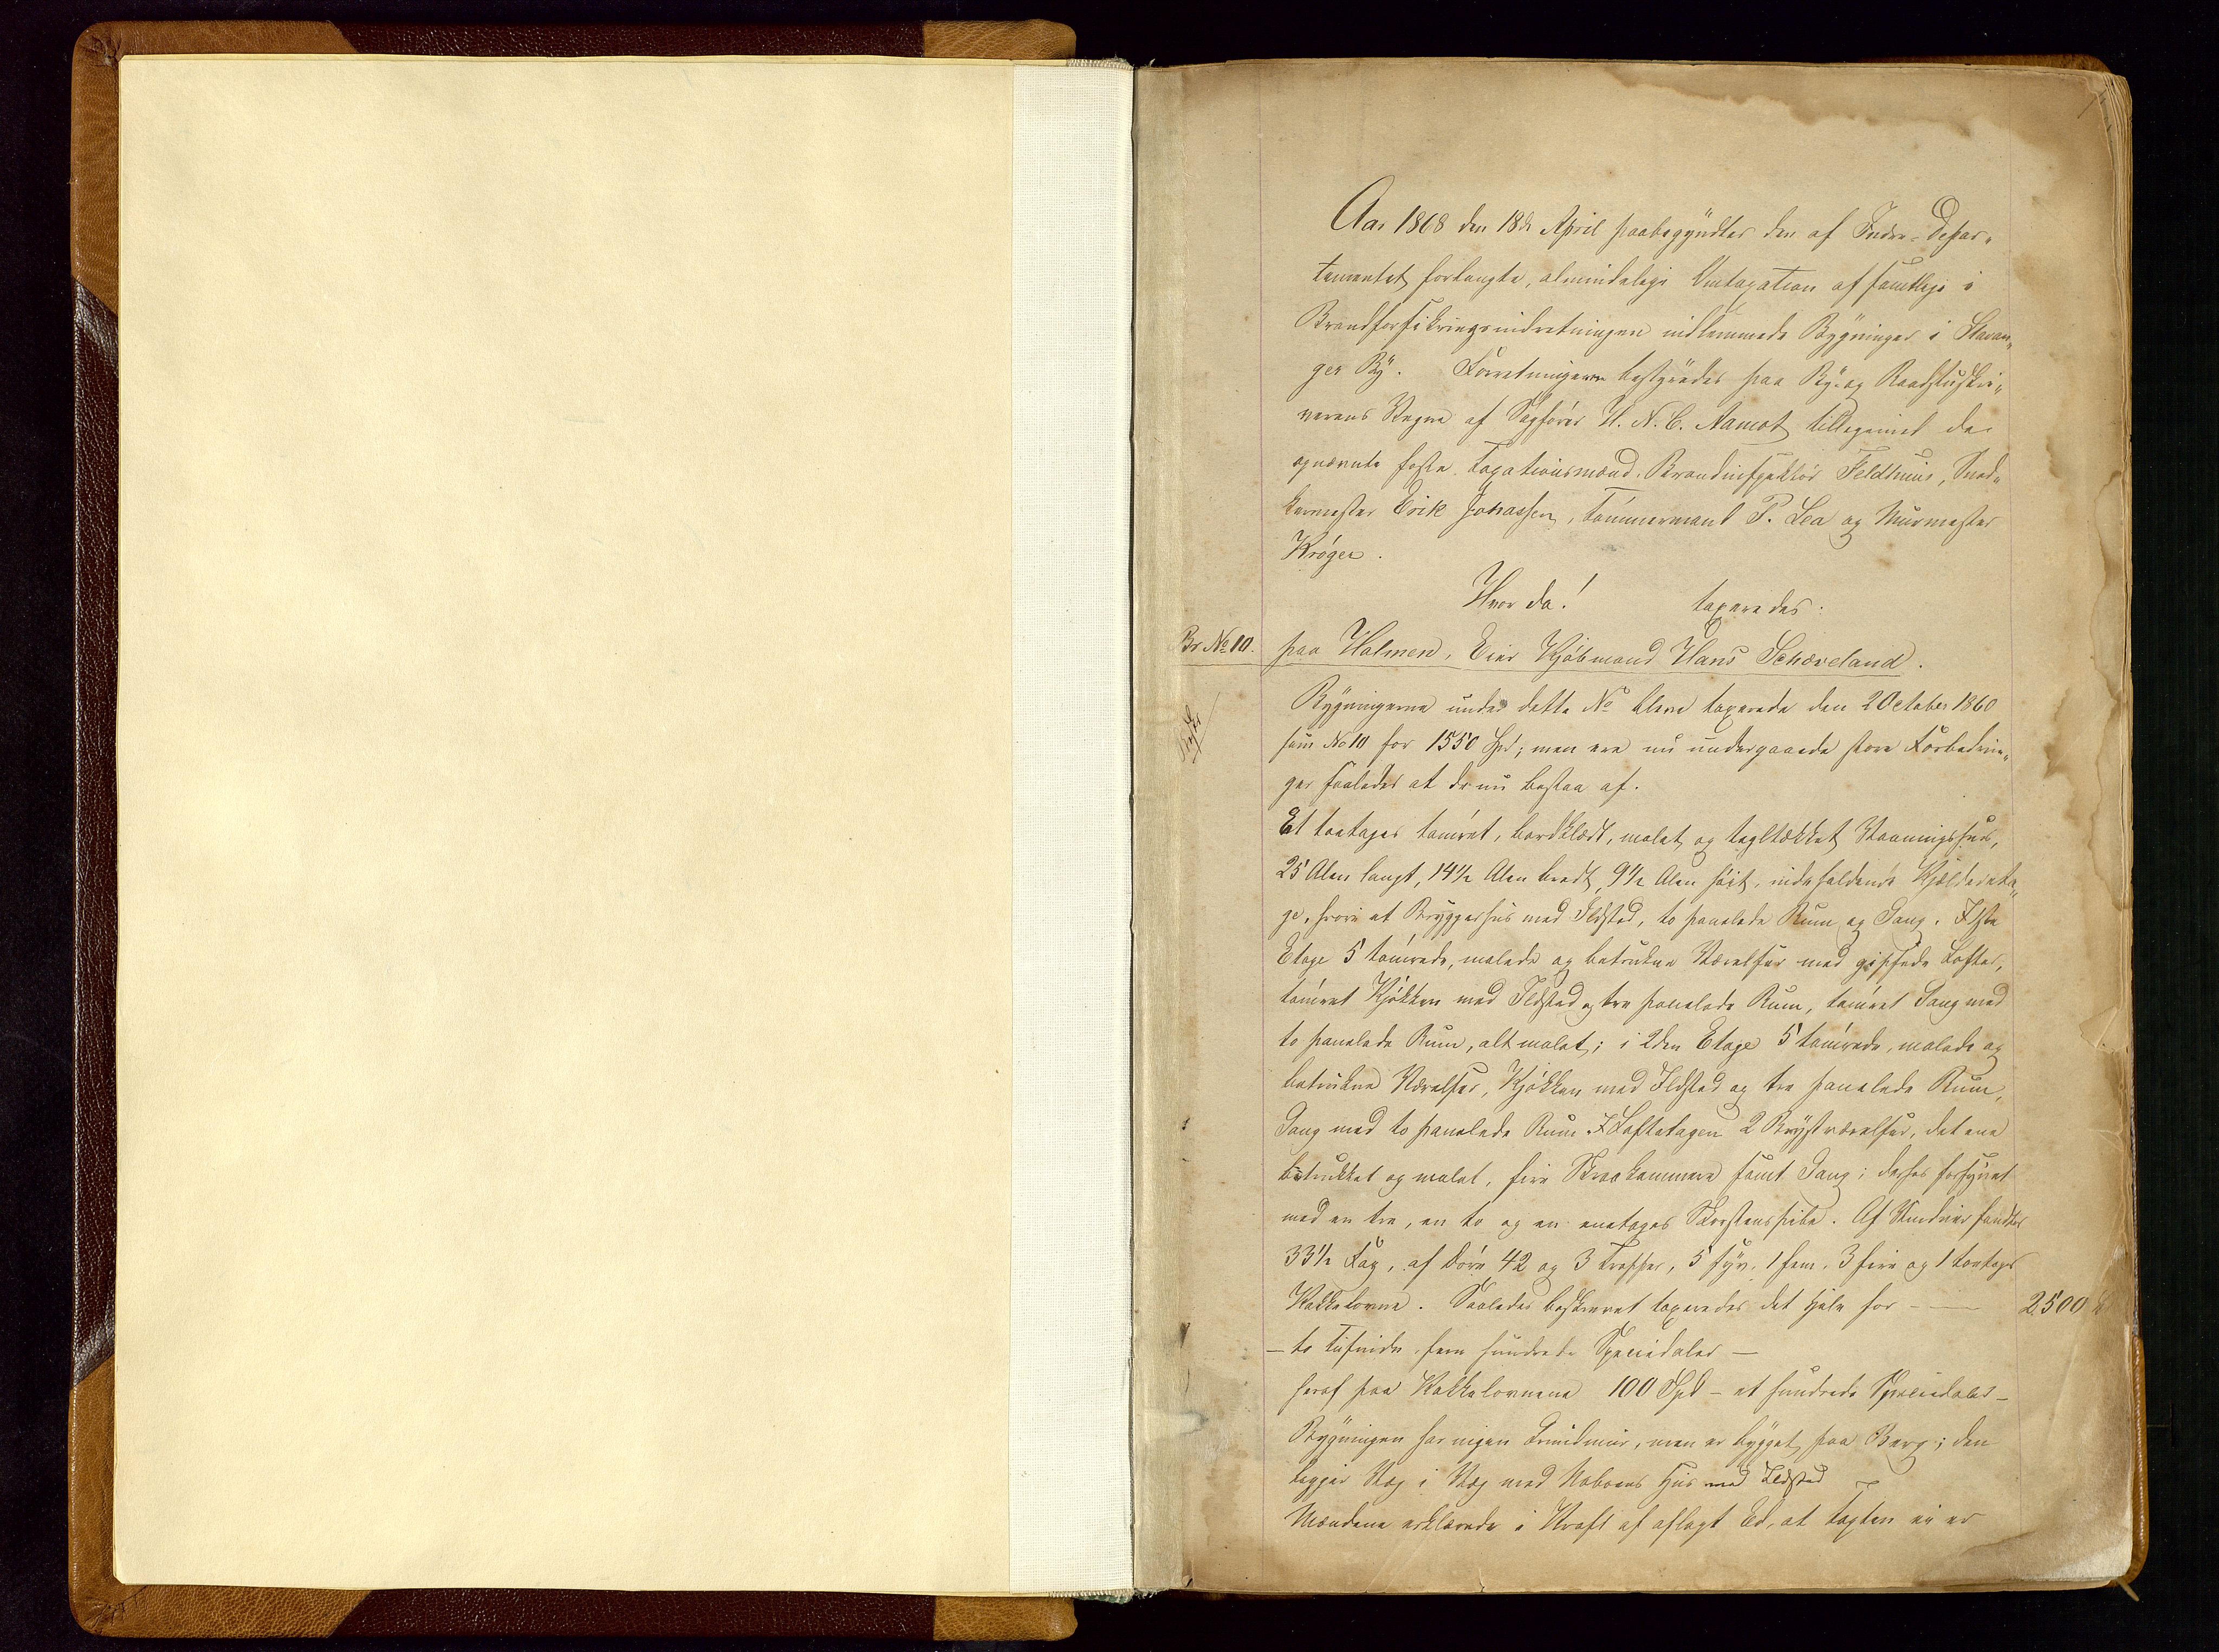 Aar 1868 den 18de April paabegyndtes den af Indre-Depar„
tementet forlangte, almindelige Omtaxation af samtlige i
Brandforsikringsindretningen indlemmede Bygninger i Stavan„
ger By. Forretningerne bestyredes paa By- og Raadstuskri„
verens Vegne af Sagfører H. N. C. Namot tilligemed de
opnævnte faste Taxationsmænd, Brandinspektør Feldtmus, Sned„
kermester Erik Johassen, Tømmermand P. Lea og Murmester
Krøger.
Hvor da! taxeredes:
Br. No 10. paa Holmen, Eier Kjøbmand Hans Schæveland.
Bygningerne under dette No bleve taxerede den 2 October 1860
som No 10 for 1550 Spd; men ere nu undergaaede store Forbedrin„
ger saaledes at de nu bestaa af.
Et toetages tømret, bordklædt, malet og tegltækket Vaaningshus,
25 Alen langt, 14½ Alen bredt, 9½ Alen høit, indeholdende Kjældereta„
ge, hvori et Bryggerhus med Ildsted, to panelede Rum og Gang. I 1ste
Etage 5 tømrede, malede og betrukne Værelser med gipsede Lofter,
tømret Kjøkken med Ildsted og tre panelede Rum, tømret Gang med
to panelede Rum, alt malet; i 2den Etage 5 tømrede, malede og
betrukne Værelser, Kjøkken med Ildsted og tre panelede Rum,
Gang med to panelede Rum. I Loftetagen 2 Kvistværelser, det ene
betrukket og malet, fire Skraakammere samt Gang; derhos forsynet
med en tre, en to og en enetages Skorstenspibe. Af Vinduer fandtes
33½ Fag, af Døre 42 og 3 Trapper, 5 fyr, 1 fem, 3 fire og 1 toetages
Kakkelovne. Saaledes beskrevet taxeredes det Hele for - — 2500
— to tusinde, fem hundrede Speciedaler —
heraf paa Kakkelovnene 100 Spd - et hundrede Speciedaler -
Bygningen har ingen Grundmur, men er bygget paa Berg; den
ligger Væg i Væg med Naboens Hus med Ildsted
Mændene erklærede i Kraft af aflagt Ed, at Taxten ei er